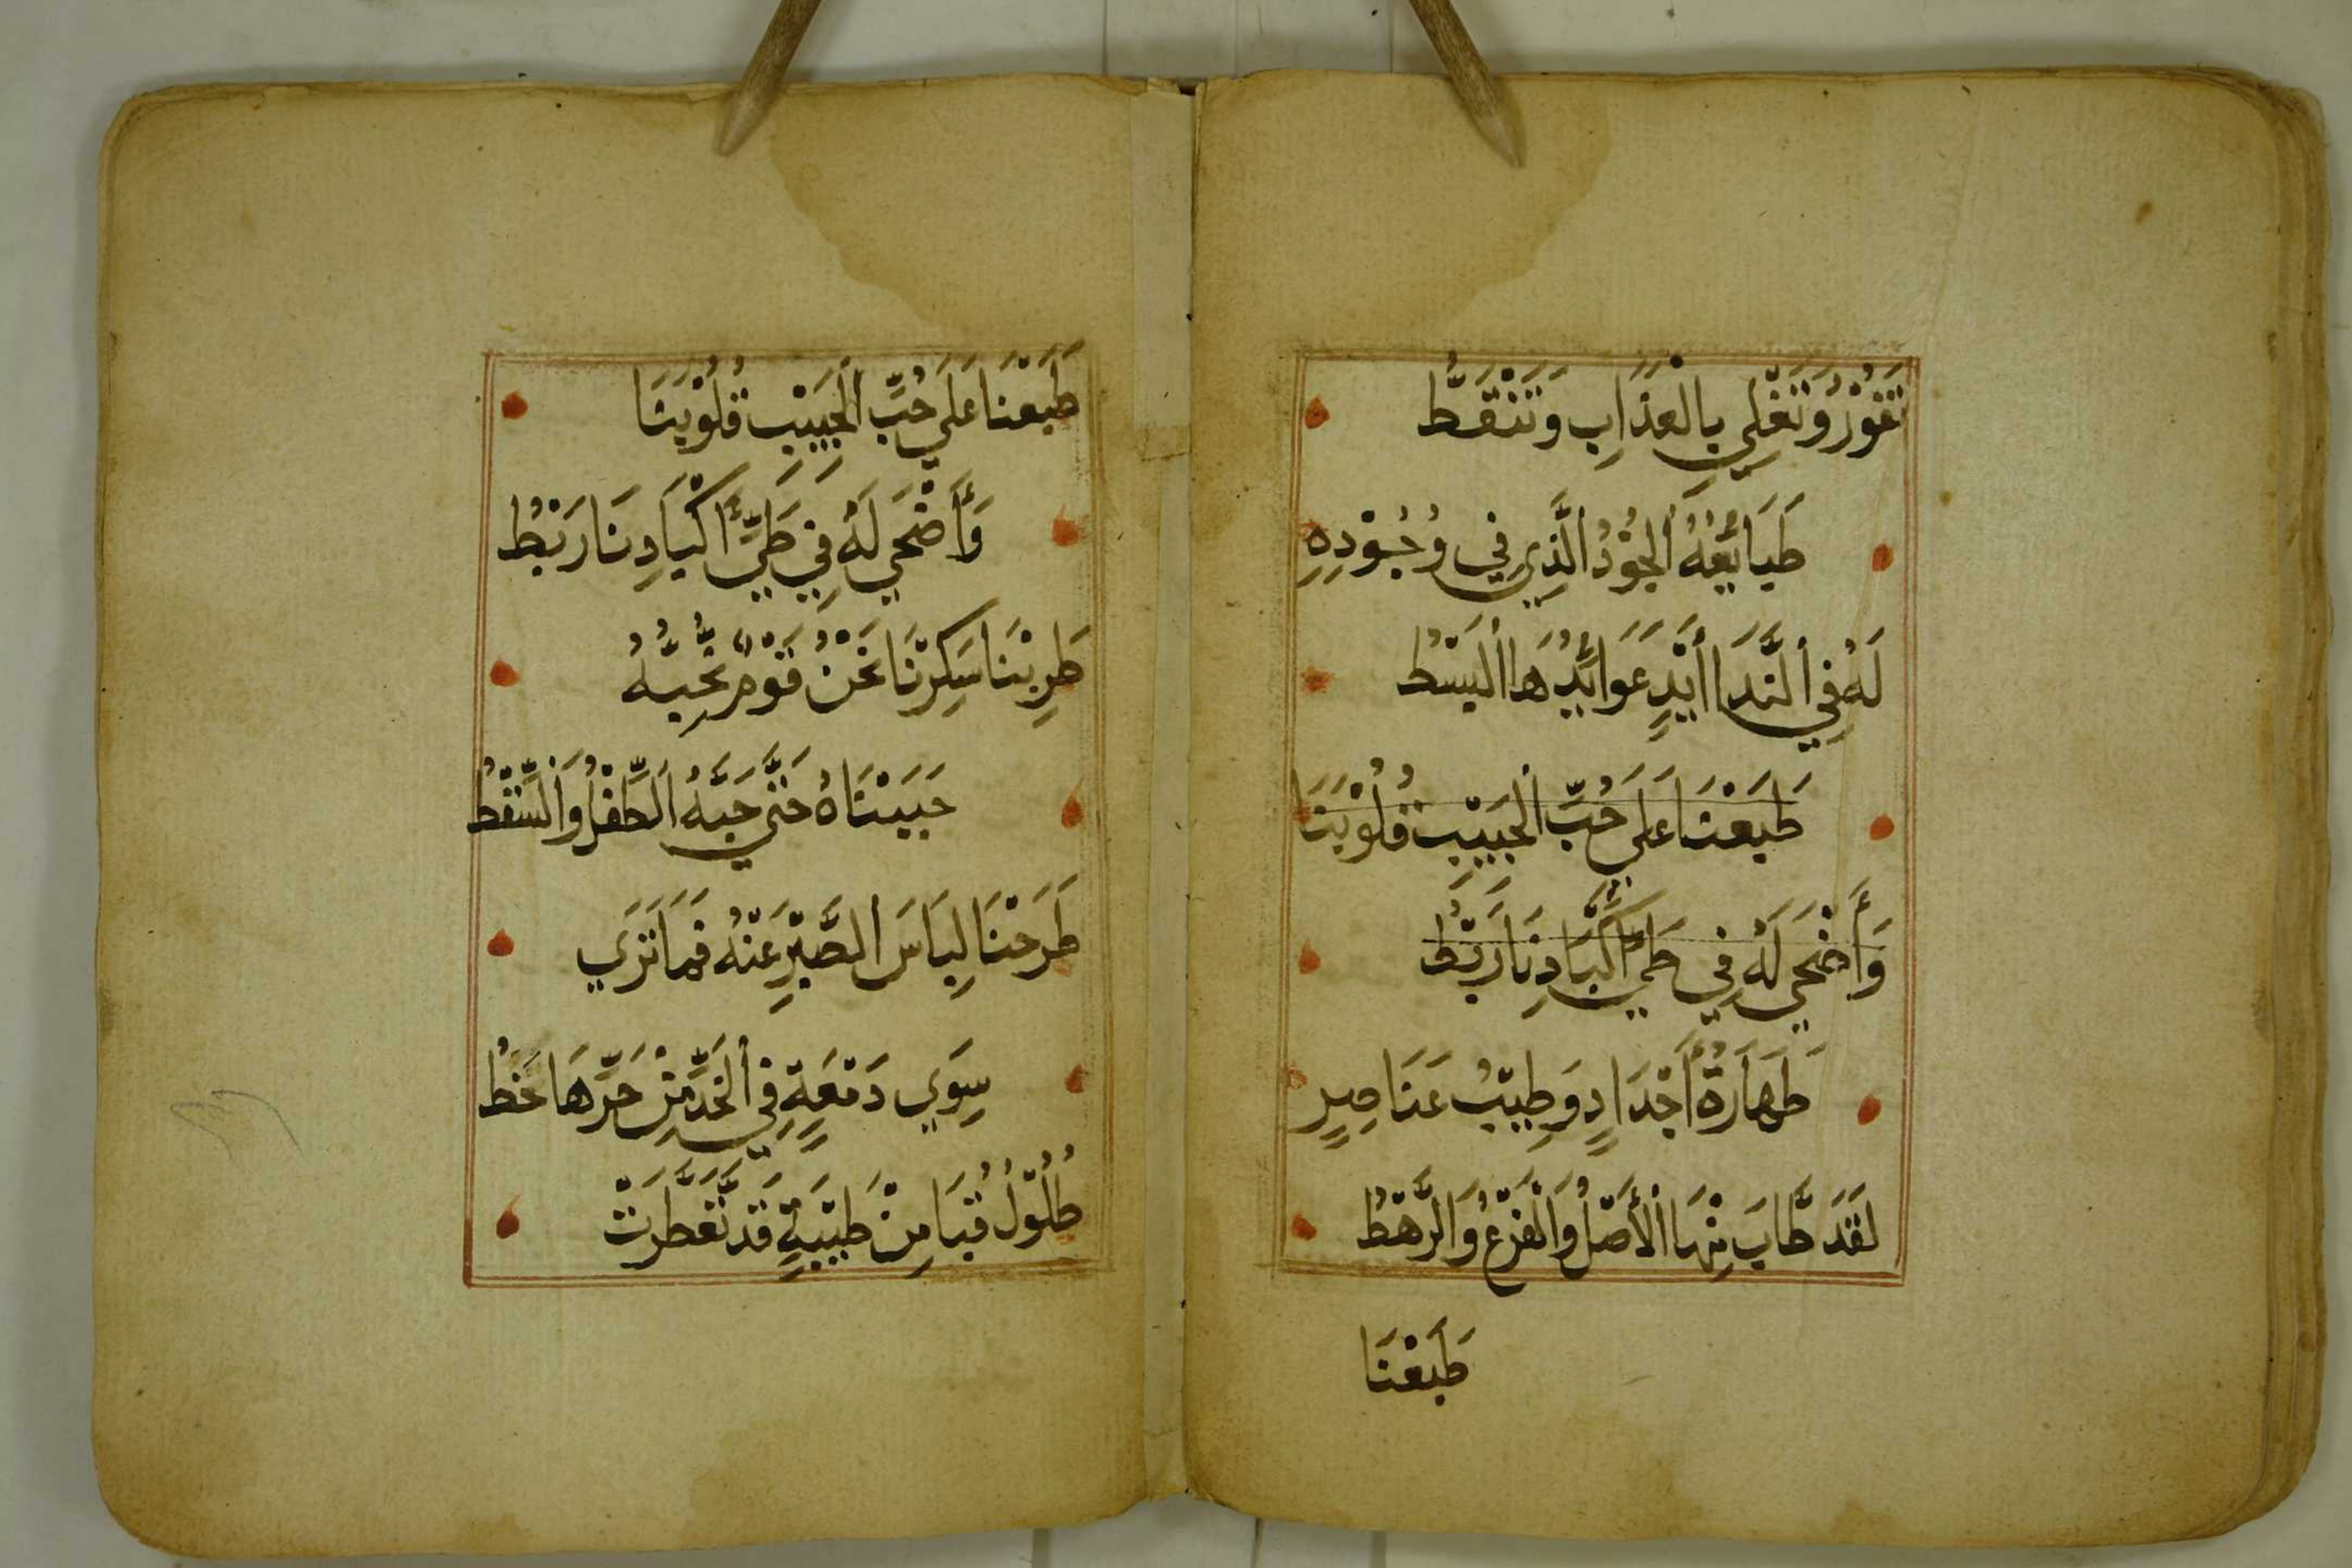 تَفُوْرُ وَتَغْلِي بِالْعَذَابِ وَتَنْقَطُّ
طَبَائِعُهُ الْجُوْدُ الَّذِي فِي وُجُوْدِهِ
لَهُ فِي النَّدَا أَيْدٍ عَوَائِدُهَا الْبَسْطُ
طَبَعْنَا عَلَي حُبِّ الْحَبِيْبِ قُلُوْبَنَا
وَأَضْحَي لَهُ فِي طَيِّ أَكْبَادِنَا رَبْطُ
طَهَارَةُ أَجْدَادٍ وَطِيْبُ عَنَاصِرٍ
لَقَدْ طَابَ مِنْهَا الْأَصْلُ وَالْفَرْعُ وَالرَّهْطُ
طَبَعْنَا
طَبَعْنَا عَلَي حُبِّ الْحَبِيْبِ قُلُوْبَنَا
وَأَضْحَي لَهُ فِي طَيِّ أَكْبَادِنَا رَبْطُ
طَرِبْنَا سَكِرْنَا نَحْنُ قَوْمٌ نُحِبُّهُ
حَبَبْنَاهُ حَتَّي حَبَّهُ الطِّفْلُ وَالسِّقْطُ
طَرَحْنَا لِبَاسَ الصَّبْرِ عَنْهُ فَمَا نَرَي
سِوَي دَمْعَةٍ فِي الْخَدِّ مِنْ حَرِّهَا خَطُّ
طُلُوْلُ قُبَا مِنْ طَيْبَةٍ قَدْ تَعَطَّرَتْ